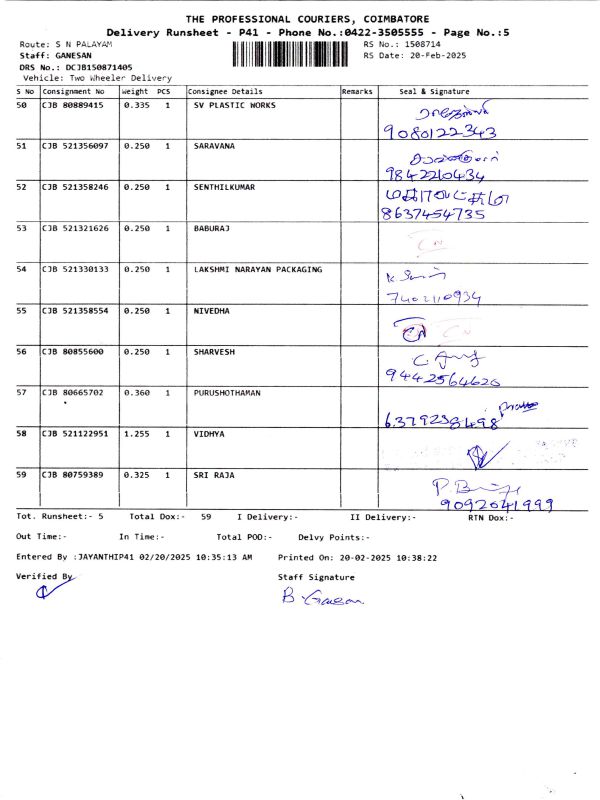 THE PROFESSIONAL COURIERS, COIMBATORE
Delivery Runsheet - P41 - Phone No.:0422-3505555 - Page No.:5
Route: S N PALAYAM RS No.: 1508714
Staff: GANESAN RS Date: 20-Feb-2025
DRS No.: DCJB150871405
Vehicle: Two Wheeler Delivery
S No Consignment No Weight PCS Consignee Details Remarks Seal & Signature
50 CJB 80889415 0.335 1 SV PLASTIC WORKS
9080122343
51 CJB 521356097 0.250 1 SARAVANA
9842210434
52 CJB 521358246 0.250 1 SENTHILKUMAR
8637454735
53 CJB 521321626 0.250 1 BABURAJ
CN
54 CJB 521330133 0.250 1 LAKSHMI NARAYAN PACKAGING
7402110934
55 CJB 521358554 0.250 1 NIVEDHA
CN CN
56 CJB 80855600 0.250 1 SHARVESH
9442564620
57 CJB 80665702 0.360 1 PURUSHOTHAMAN
58 CJB 521122951 1.255 1 VIDHYA
59 CJB 80759389 0.325 1 SRI RAJA
9092041999
Tot. Runsheet:- 5 Total Dox:- 59 I Delivery:- II Delivery:- RTN Dox:-
Out Time:- In Time:- Total POD:- Delvy Points:-
Entered By :JAYANTHIP41 02/20/2025 10:35:13 AM Printed On: 20-02-2025 10:38:22
Verified By Staff Signature